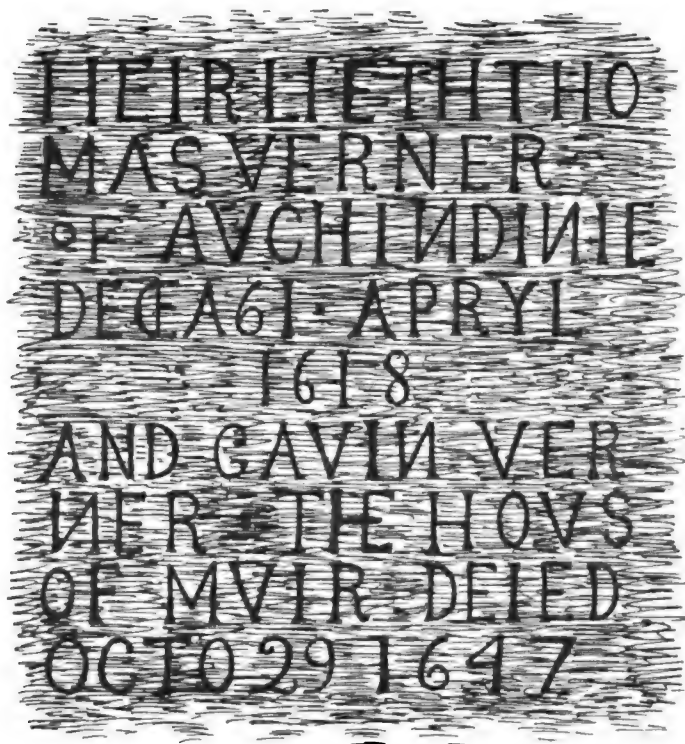 HEIR LIETH THO
MAS VERNER
OF AVCHINDINIE
DECEA61 · APRYL
1618
AND GAVIN VER
NER · THE HOVS
OF MVIR · DEIED
OCTO 29 1647